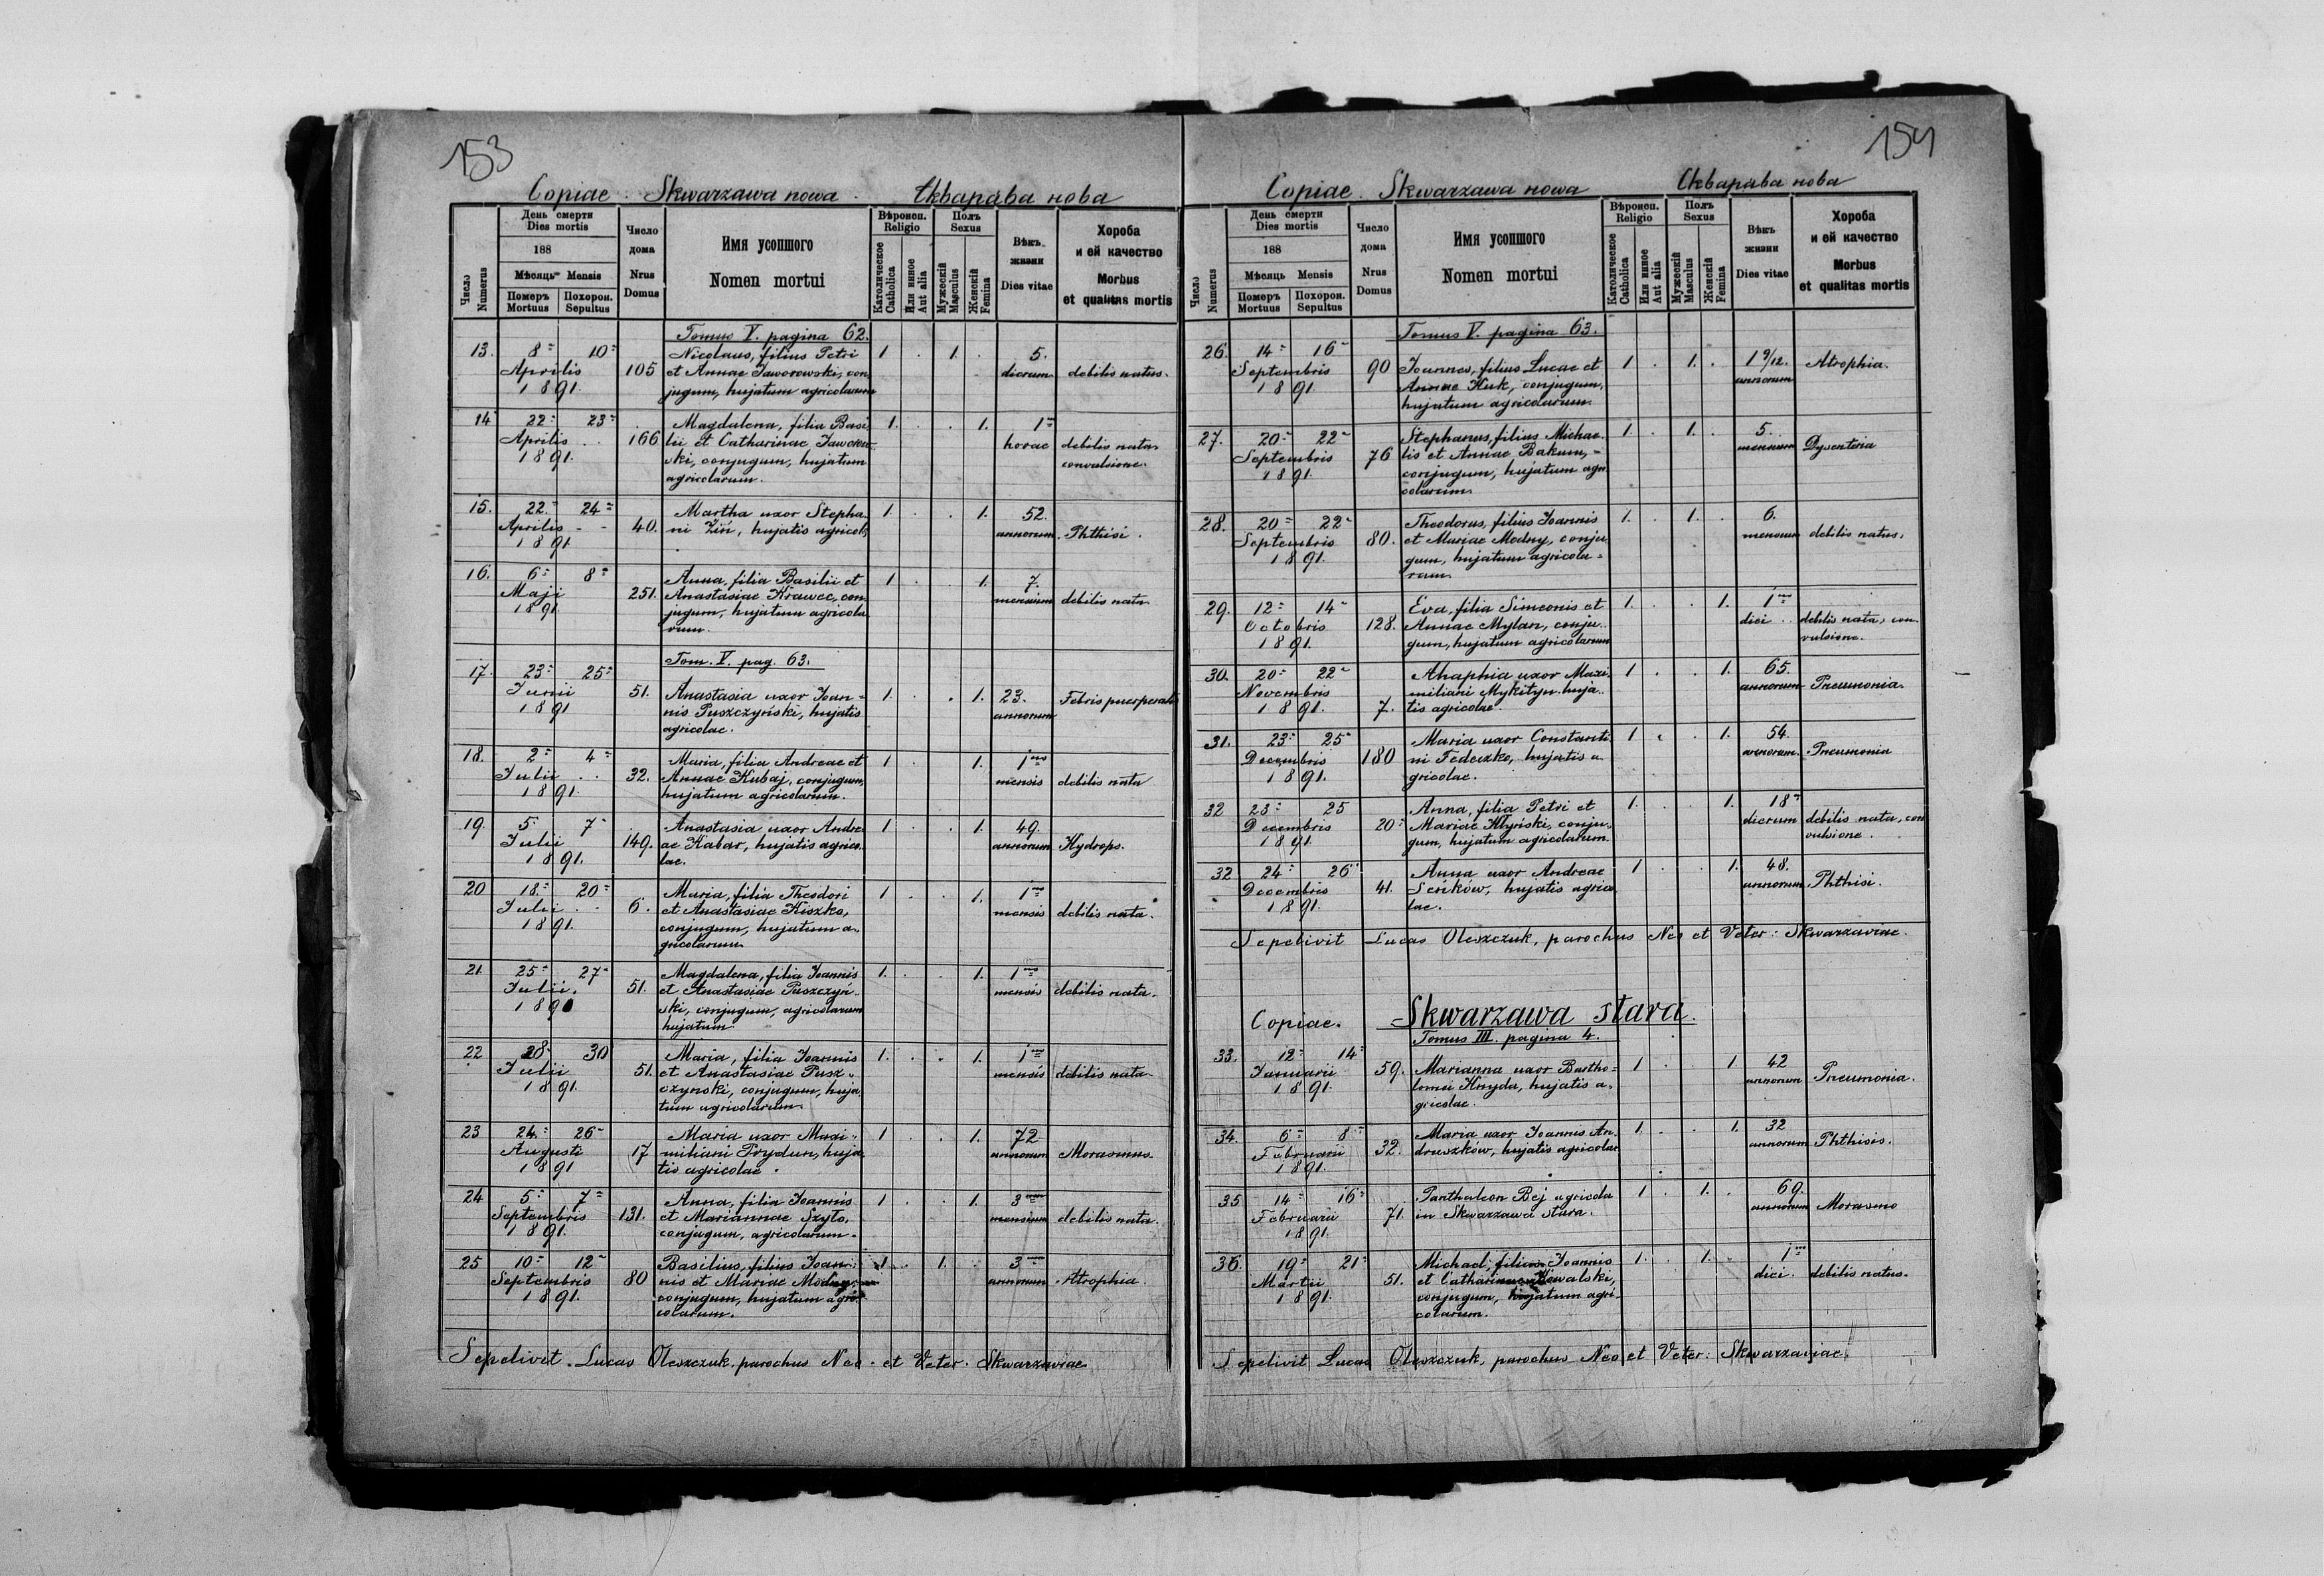 153
Copiae. Skwarzawa nowa. Скварава нова
Число
Numerus
День смерти
Dies mortis
188
Мѣсяць Mensis
Померъ
Mortuus
Похорон.
Sepultus
Число
дома
Nrus
Domus
Имя усопшого
Nomen mortui
Вѣроисп.
Religio
Католическое
Catholica
Или иное
Aut alia
Полъ
Sexus
Мужескій
Masculus
Женскій
Femina
Вѣкъ
жизни
Dies vitae
Хороба
и ей качество
Morbus
et qualitas mortis
Tomus V. pagina 62.
13. 8 10 Nicolaus, filius Petri 1 . 1. . 5.
Aprilis 105 et Annae Jaworowski, con dierum debilis natus.
1891 jugum, hujatum agricolarum
14 22 23 Magdalena, filia Basi 1. . . 1. 1
Aprilis 166 lii et Catharinae horae debilis nata
1891. ski, conjugum, hujatum convulsione.
agricolarum.
15. 22. 24 Martha uxor Stepha 1 . . 1. 52.
Aprilis 40. ni Ziń, hujatis agricol annorum. Phthisi.
1891
16. 6 8 Anna, filia Basilii et 1 . . 1. 7.
Maji 251. Anastasiae Krawec, con mensium debilis nata
1891 jugum, hujatum agricola
rum.
Tom. V. pag. 63.
17. 23 25
Junii 51. Anastasia uxor Ioan= 1. . . 1. 23. Febris puerperalis
1891 nis Puszczyński, hujatis annorum
agricolae.
18. 2 4 Maria, filia Andreae et 1 . 1. 1
Julii 32. Annae Kubaj, conjugum, mensis debilis nata
1891. hujatum agricolarum.
19. 5. 7 Anastasia uxor Andre 1 . . 1. 49.
Julii 149. ae Kabar, hujatis agrico annorum Hydrops.
1891. lae.
20 18. 20 Maria, filia Theodori 1 . . 1. 1
Julii 6. et Anastasiae Kiszko, mensis debilis nata.
1891. conjugum, hujatum a
gricolarum
21. 25 27 Magdalena, filia Ioannis 1. . . 1. 1
Julii. 51. et Anastasiae Puszczyń mensis debilis nata.
1890 ski, conjugum, agricolarum
hujatum
22 28 30 Maria, filia Ioannis 1. . . 1. 1
Julii 51. et Anastasiae Pusz mensis debilis nata
1891. czynski, conjugum, huja
tum agricolarum
23 24. 26 Maria uxor Maxi 1 . . 1. 72
Augusti 17 miliani Prydun, huja annorum Morasmus
1891 tis agricolae.
24 5 7 Anna, filia Ioannis 1 . . 1. 3
Septembris 131. et Mariannae Szyto, mensium debilis nata.
1891. conjugum, agricolarum.
25 10 12 Basilius, filius Ioan 1 . 1. . 3
Septembris 80 nis et Mariae Modny annorum Atrophia
1891. conjugum, hujatum agri
colarum.
Sepelivit. Lucas Oleszczuk, parochus Neo. et Veter. Skwarzaviae
154
Copiae. Skwarzawa nowa Скварава нова
Число
Numerus
День смерти
Dies mortis
188
Мѣсяць Mensis
Померъ
Mortuus
Похорон.
Sepultus
Число
дома
Nrus
Domus
Имя усопшого
Nomen mortui
Вѣроисп.
Religio
Католическое
Catholica
Или иное
Aut alia
Полъ
Sexus
Мужескій
Masculus
Женскій
Femina
Вѣкъ
жизни
Dies vitae
Хороба
и ей качество
Morbus
et qualitas mortis
Tomus V. pagina 63.
26. 14 16
Septembris 90 Ioannes, filius Lucae et 1 . 1. . 1 9/12. Atrophia.
1891. Annae Kuk, conjugum, annorum
hujatum agricolarum
27. 20 22 Stephanus, filius Michae 1. . 1. . 5.
Septembris 76 lis et Annae Bakum, mensium Dysenteria
1891. conjugum, hujatum agri
colarum
28. 20 22 Theodorus, filius Ioannis 1. . 1. . 6.
Septembris 80. et Mariae Modny, conju mensum debilis natus.
1891. gum, hujatum agricola=
rum
29. 12 14 Eva, filia Simeonis et 1. . . 1. 1
Octobris 128. Annae Mylan, conju dici debilis nata, con
1891. gum, hujatum agricolarum vulsione.
30. 20 22 Ahaphia uxor Maxi 1 . . 1. 65.
Novembris miliani Mykityn huja annorum Pneumonia.
1891. 7. tis agricolae.
31. 23 25 Maria uxor Constanti 1 . . 1. 54.
Decembris 180 ni Fedeczko, hujatis a annorum. Pneumonia
1891. gricolae.
32 23 25 Anna, filia Petri et 1. . . 1. 18
Decembris 20 Mariae Kłyński, conju dierum debilis nata, con
1891. gum, hujatum agricolarum. vulsione.
32 24 26 Anna uxor Andreae 1 . . 1. 48.
Decembris 41. Seńków, hujatis agrico annorum Phthisi.
1891 lae.
Sepelivit Lucas Oleszczuk, parochus Neo et Veter: Skwarzaviae.
Copiae. Skwarzawa stara.
Tomus III. pagina 4.
33. 12 14
Januarii 59. Marianna uxor Bartho= 1 . . 1. 42
1891. lomei Knyda, hujatis a annorum Pneumonia.
gricolae.
34. 6 8 Maria uxor Ioannis An 1. . . 1. 32
Februarii 32. druszków, hujatis agricolae annorum Phthisis.
1891.
35 14 16 Panthaleon Bej agricola 1 . 1. . 69.
Februarii 71. in Skwarzawa stara. annorum Morasmo
1891.
36. 19 21 Michael, filius Ioannis 1. . 1. . 1
Martii 51. et Catharinae Kowalski, dici. debilis natus.
1891. conjugum, hujatum agri
colarum.
Sepelivit Lucas Oleszczuk, parochus Neo et Veter: Skwarzaviae.